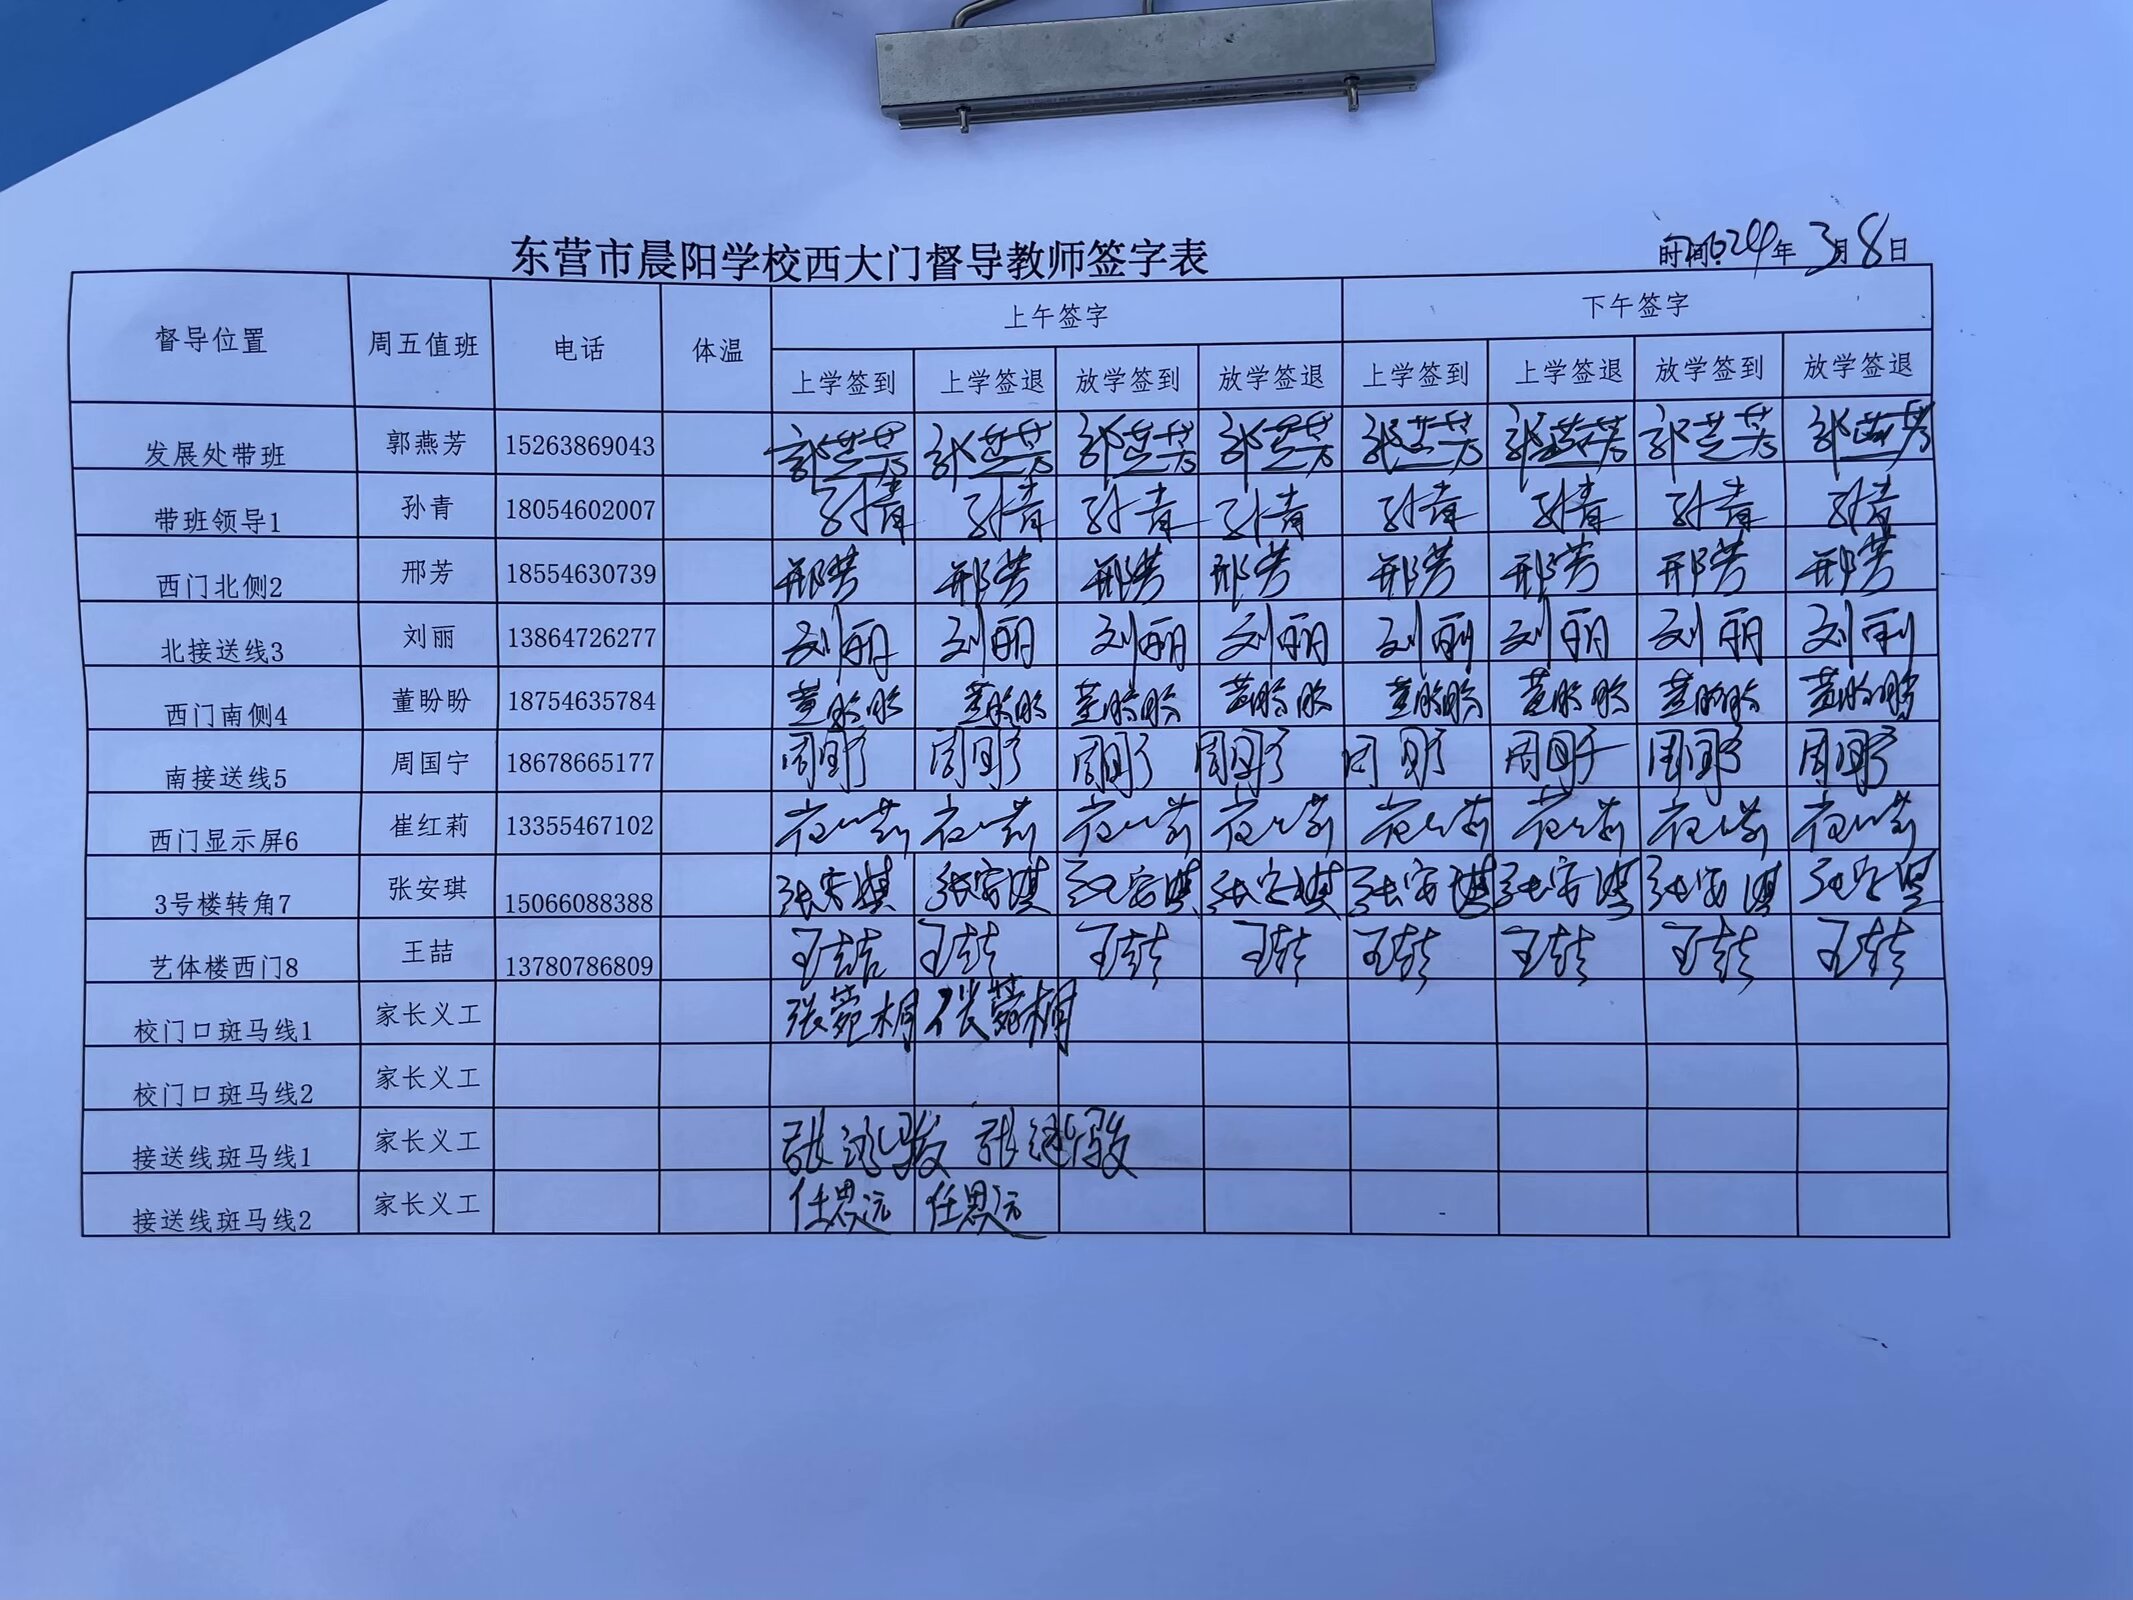 东营市晨阳学校西大门督导教师签字表
时间:024年3月8日
督导位置 周五值班 电话 体温 上午签字 下午签字
上学签到 上学签退 放学签到 放学签退 上学签到 上学签退 放学签到 放学签退
发展处带班 郭燕芳 15263869043 郭芝芳 郭芝芳 郭芝芳 郭芝芳 郭芝芳 郭芝芳 郭芝芳 郭芝芳
带班领导1 孙青 18054602007 孙青 孙青 孙青 孙青 孙青 孙青 孙青 孙青
西门北侧2 邢芳 18554630739 邢芳 邢芳 邢芳 邢芳 邢芳 邢芳 邢芳 邢芳
北接送线3 刘丽 13864726277 刘丽 刘丽 刘丽 刘丽 刘丽 刘丽 刘丽 刘丽
西门南侧4 董盼盼 18754635784 董盼盼 董盼盼 董盼盼 董盼盼 董盼盼 董盼盼 董盼盼 董盼盼
南接送线5 周国宁 18678665177 周国宁 周国宁 周国宁 周国宁 周国宁 周国宁 周国宁 周国宁
西门显示屏6 崔红莉 13355467102 崔红莉 崔红莉 崔红莉 崔红莉 崔红莉 崔红莉 崔红莉 崔红莉
3号楼转角7 张安琪 15066088388 张安琪 张安琪 张安琪 张安琪 张安琪 张安琪 张安琪 张安琪
艺体楼西门8 王喆 13780786809 王喆 王喆 王喆 王喆 王喆 王喆 王喆 王喆
校门口斑马线1 家长义工 张菀桐 张菀桐
校门口斑马线2 家长义工
接送线斑马线1 家长义工
接送线斑马线2 家长义工 任思远 任思远